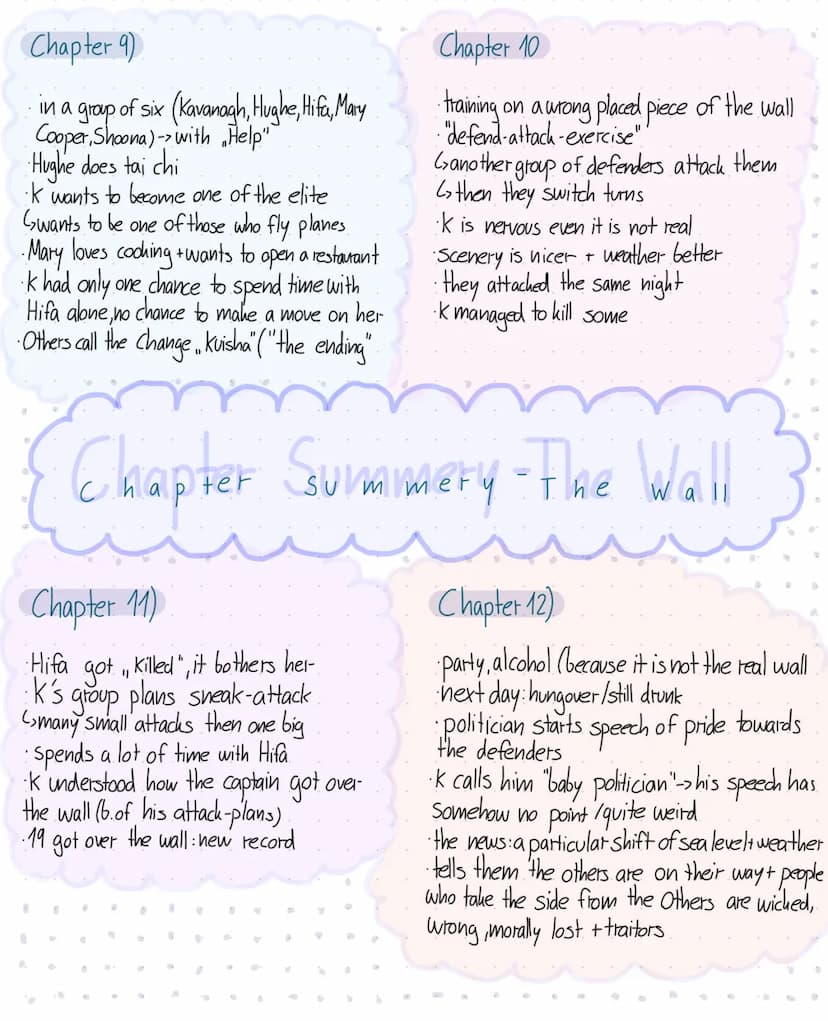 Chapter 9)
· in a group of six (Kavanagh, Hughe, Hifa, Mary
Cooper, Shoona) -> with „Help"
·Hughe does tai chi
·K wants to become one of the elite
↳wants to be one of those who fly planes
·Mary loves cooking + wants to open a restaurant
·K had only one chance to spend time with
Hifa alone, no chance to make a move on her
·Others call the Change „Kuisha" ("the ending"
Chapter 10
·training on a wrong placed piece of the wall
·"defend-attack-exercise"
↳another group of defenders attack them
↳then they switch turns
·K is nervous even it is not real
·scenery is nicer + weather better
·they attacked the same night
·K managed to kill some
Chapter Summery - The Wall
Chapter Summery - The Wall
Chapter 11)
·Hifa got „killed", it bothers her
·K's group plans sneak-attack
↳many small attacks then one big
·spends a lot of time with Hifa
·K understood how the captain got over
the wall (b. of his attack-plans)
·19 got over the wall: new record
Chapter 12)
·party, alcohol (because it is not the real wall
·next day: hungover/still drunk
·politician starts speech of pride towards
the defenders
·K calls him "baby politician" -> his speech has
somehow no point /quite weird
·the news: a particular shift of sea level + weather
·tells them the others are on their way + people
who take the side from the Others are wicked,
wrong, morally lost + traitors